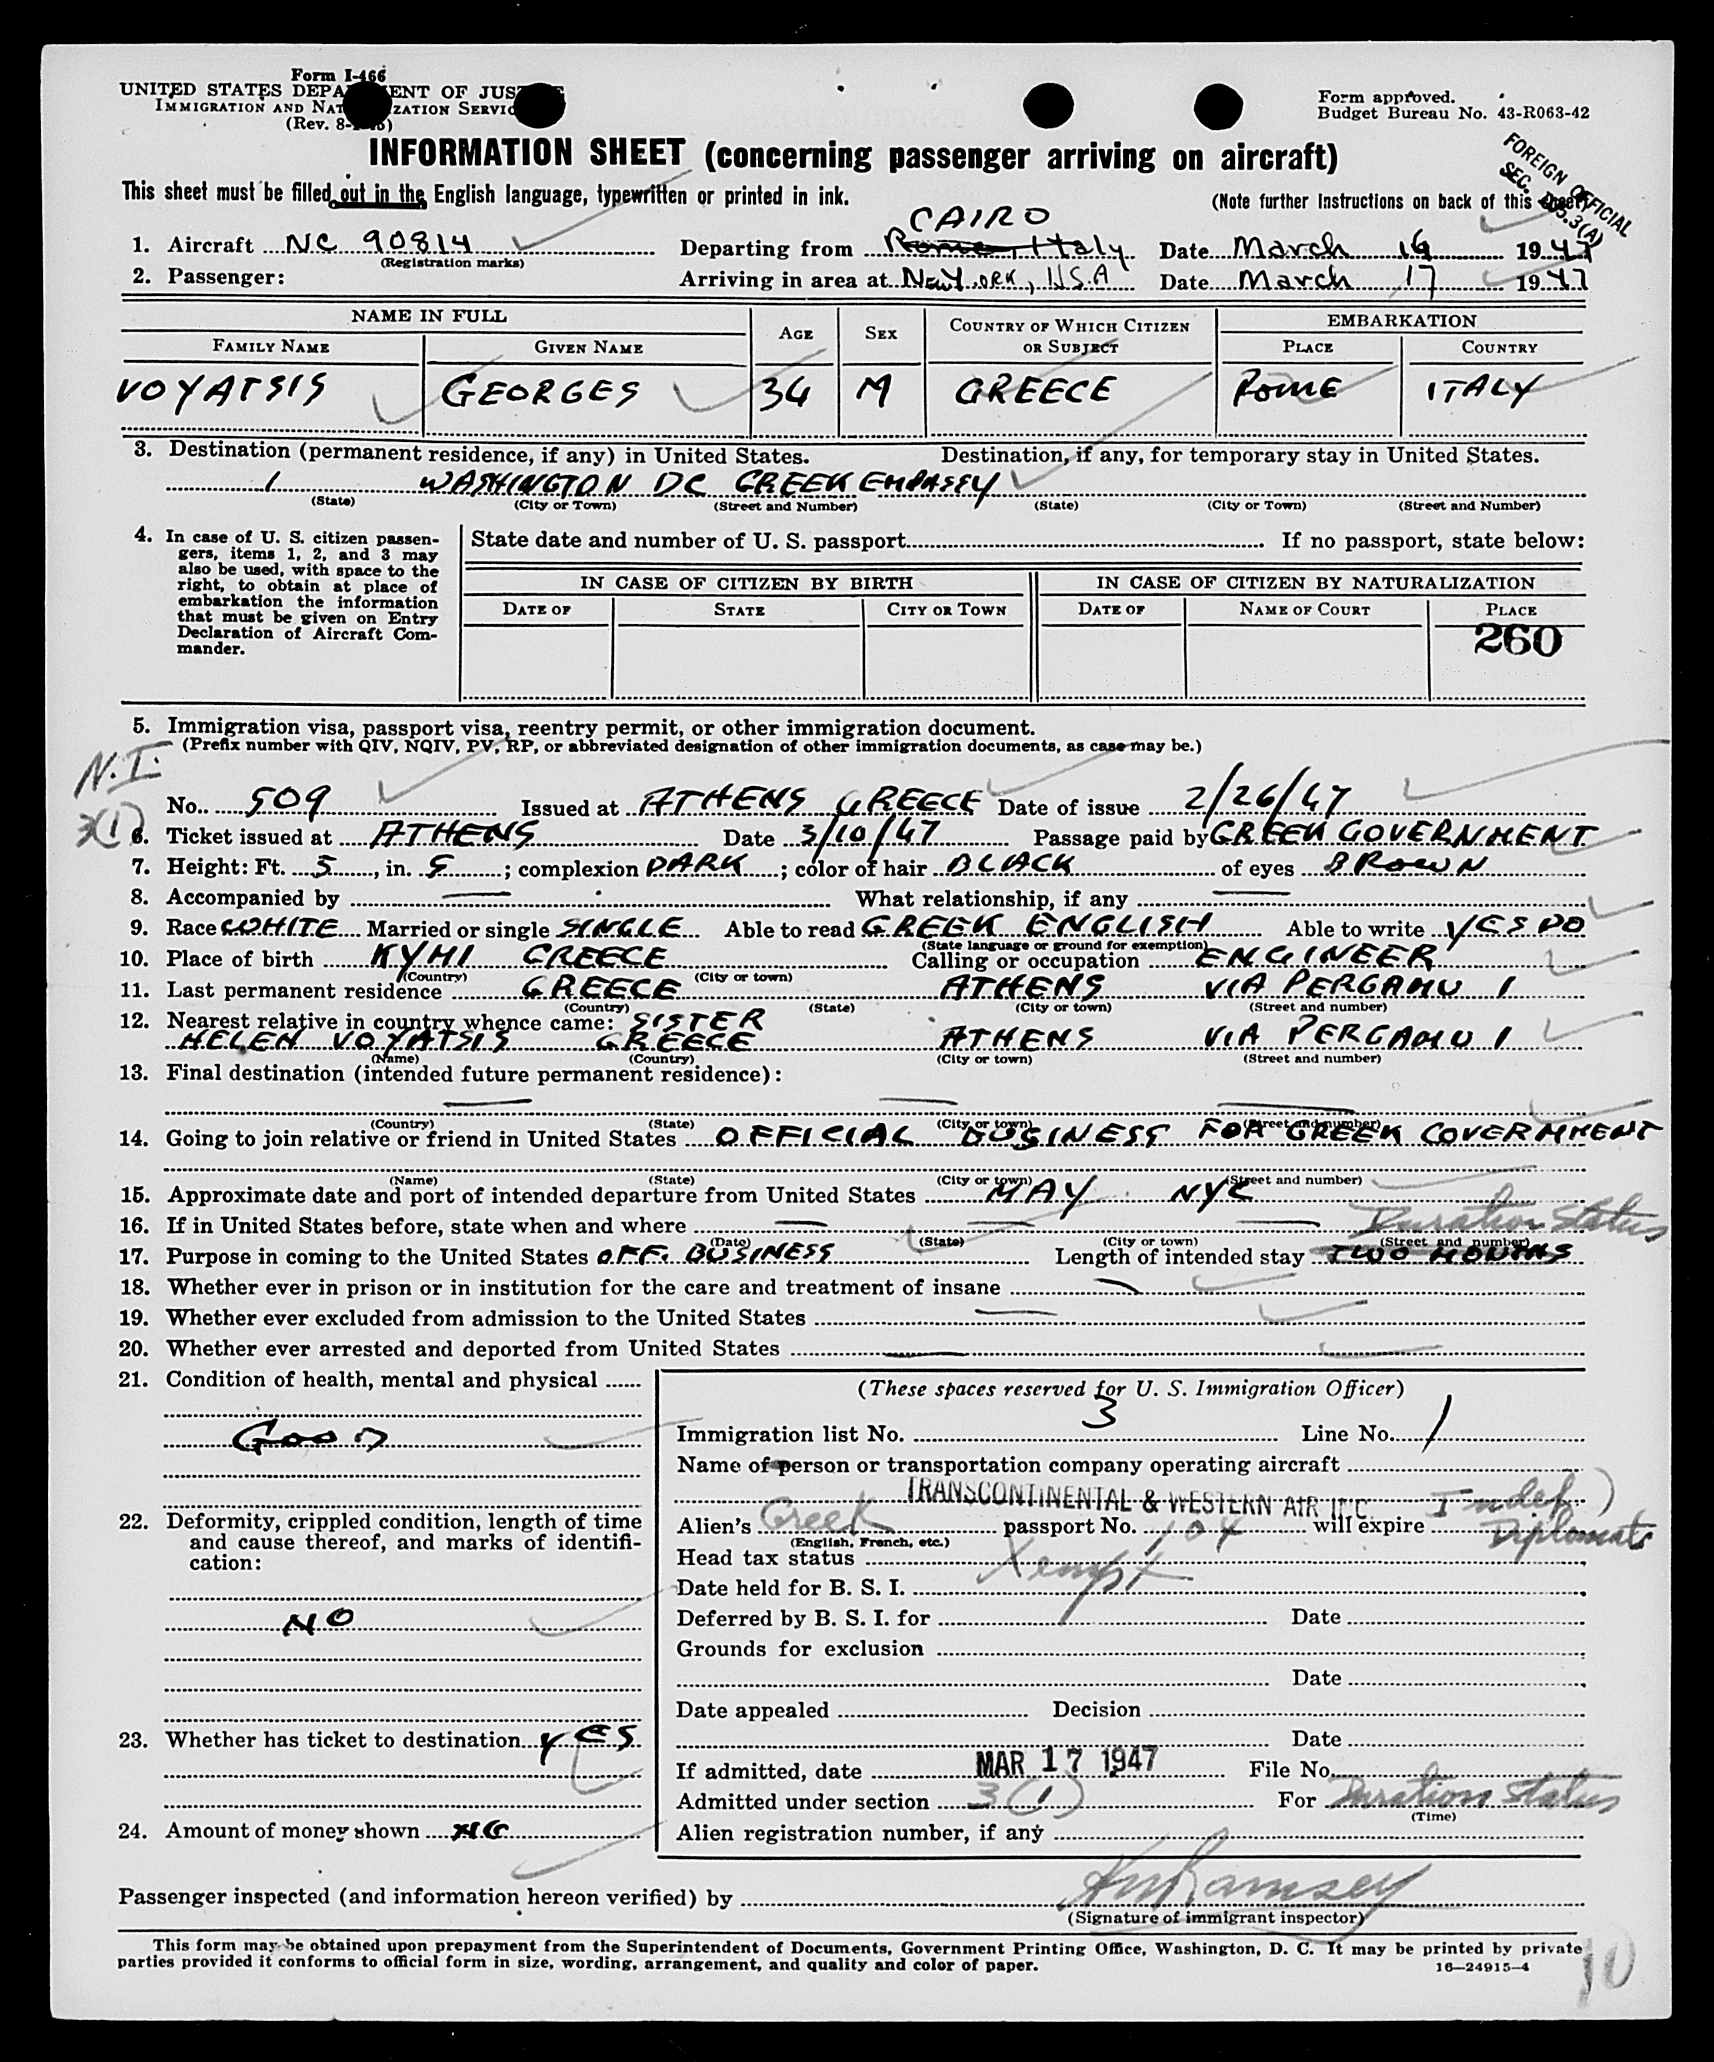 Form I-466
UNITED STATES DEPARTMENT OF JUSTICE
IMMIGRATION AND NATURALIZATION SERVICE
(Rev. 8-
Form approved.
Budget Bureau No. 43-R063-42
INFORMATION SHEET (concerning passenger arriving on aircraft)
FOREIGN OFFICIAL
SEC.
This sheet must be filled out in the English language, typewritten or printed in ink.
(Note further Instructions on back of this sheet)
CAIRO
1. Aircraft NC 90814 Departing from Rome, Italy Date March 16 1947
(Registration marks)
2. Passenger: Arriving in area at New York, U.S.A Date March 17 1947
NAME IN FULL AGE SEX COUNTRY OF WHICH CITIZEN OR SUBJECT EMBARKATION
FAMILY NAME GIVEN NAME PLACE COUNTRY
VOYATSIS GEORGES 34 M GREECE ROME ITALY
3. Destination (permanent residence, if any) in United States. Destination, if any, for temporary stay in United States.
WASHINGTON DC GREEK EMBASSY
(State) (City or Town) (Street and Number) (State) (City or Town) (Street and Number)
4. In case of U. S. citizen passen-
gers, items 1, 2, and 3 may
also be used, with space to the
right, to obtain at place of
embarkation the information
that must be given on Entry
Declaration of Aircraft Com-
mander.
State date and number of U. S. passport If no passport, state below:
IN CASE OF CITIZEN BY BIRTH IN CASE OF CITIZEN BY NATURALIZATION
DATE OF STATE CITY OR TOWN DATE OF NAME OF COURT PLACE
260
5. Immigration visa, passport visa, reentry permit, or other immigration document.
(Prefix number with QIV, NQIV, PV, RP, or abbreviated designation of other immigration documents, as case may be.)
N.I.
No. 509 Issued at ATHENS GREECE Date of issue 2/26/47
3(1)
6. Ticket issued at ATHENS Date 3/10/47 Passage paid by GREEK GOVERNMENT
7. Height: Ft. 5, in. 5; complexion DARK; color of hair BLACK of eyes BROWN
8. Accompanied by — What relationship, if any —
9. Race WHITE Married or single SINGLE Able to read GREEK ENGLISH Able to write YES DO
(State language or ground for exemption)
10. Place of birth KYMI GREECE Calling or occupation ENGINEER
(Country) (City or town)
11. Last permanent residence GREECE ATHENS VIA PERGAMU 1
(Country) (State) (City or town) (Street and number)
12. Nearest relative in country whence came: SISTER
HELEN VOYATSIS GREECE ATHENS VIA PERGAMU 1
(Name) (Country) (City or town) (Street and number)
13. Final destination (intended future permanent residence):
— — —
(Country) (State) (City or town) (Street and number)
14. Going to join relative or friend in United States OFFICIAL BUSINESS FOR GREEK GOVERNMENT
(Name) (State) (City or town) (Street and number)
15. Approximate date and port of intended departure from United States MAY NYC
16. If in United States before, state when and where — — — Duration Status
(Date) (State) (City or town) (Street and number)
17. Purpose in coming to the United States OFF. BUSINESS Length of intended stay TWO MONTHS
18. Whether ever in prison or in institution for the care and treatment of insane —
19. Whether ever excluded from admission to the United States —
20. Whether ever arrested and deported from United States —
21. Condition of health, mental and physical
GOOD
22. Deformity, crippled condition, length of time
and cause thereof, and marks of identifi-
cation:
NO
23. Whether has ticket to destination YES
24. Amount of money shown
(These spaces reserved for U. S. Immigration Officer)
Immigration list No. 3 Line No. 1
Name of person or transportation company operating aircraft
TRANSCONTINENTAL & WESTERN AIR INC. Indef.
Alien's Greek passport No. 104 will expire Diplomatic
(English, French, etc.)
Head tax status Xempt
Date held for B. S. I.
Deferred by B. S. I. for Date
Grounds for exclusion
Date
Date appealed Decision
Date
If admitted, date MAR 17 1947 File No.
Admitted under section 3(1) For Duration Status
(Time)
Alien registration number, if any
Passenger inspected (and information hereon verified) by Ramsey
(Signature of immigrant inspector)
This form may be obtained upon prepayment from the Superintendent of Documents, Government Printing Office, Washington, D. C. It may be printed by private
parties provided it conforms to official form in size, wording, arrangement, and quality and color of paper.
16—24915-4
10